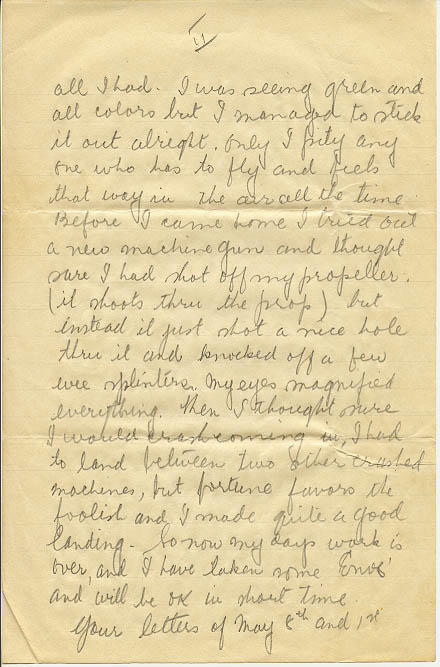 11
all I had. I was seeing green and
all colors but I managed to stick
it out alright. Only I pity any
one who has to fly and feels
that way in the air all the time.
Before I came home I tried out
a new machine gun and thought
sure I had shot off my propeller.
(it shoots thru the prop) but
instead it just shot a nice hole
thru it and knocked off a few
wee splinters. My eyes magnified
everything. Then I thought sure
I would crash coming in, I had
to land between two other crashed
machines, but fortune favors the
foolish and I made quite a good
landing. So now my days work is
over, and I have taken some "Enos"
and will be OK in short time.
Your letters of May 8th and 1st